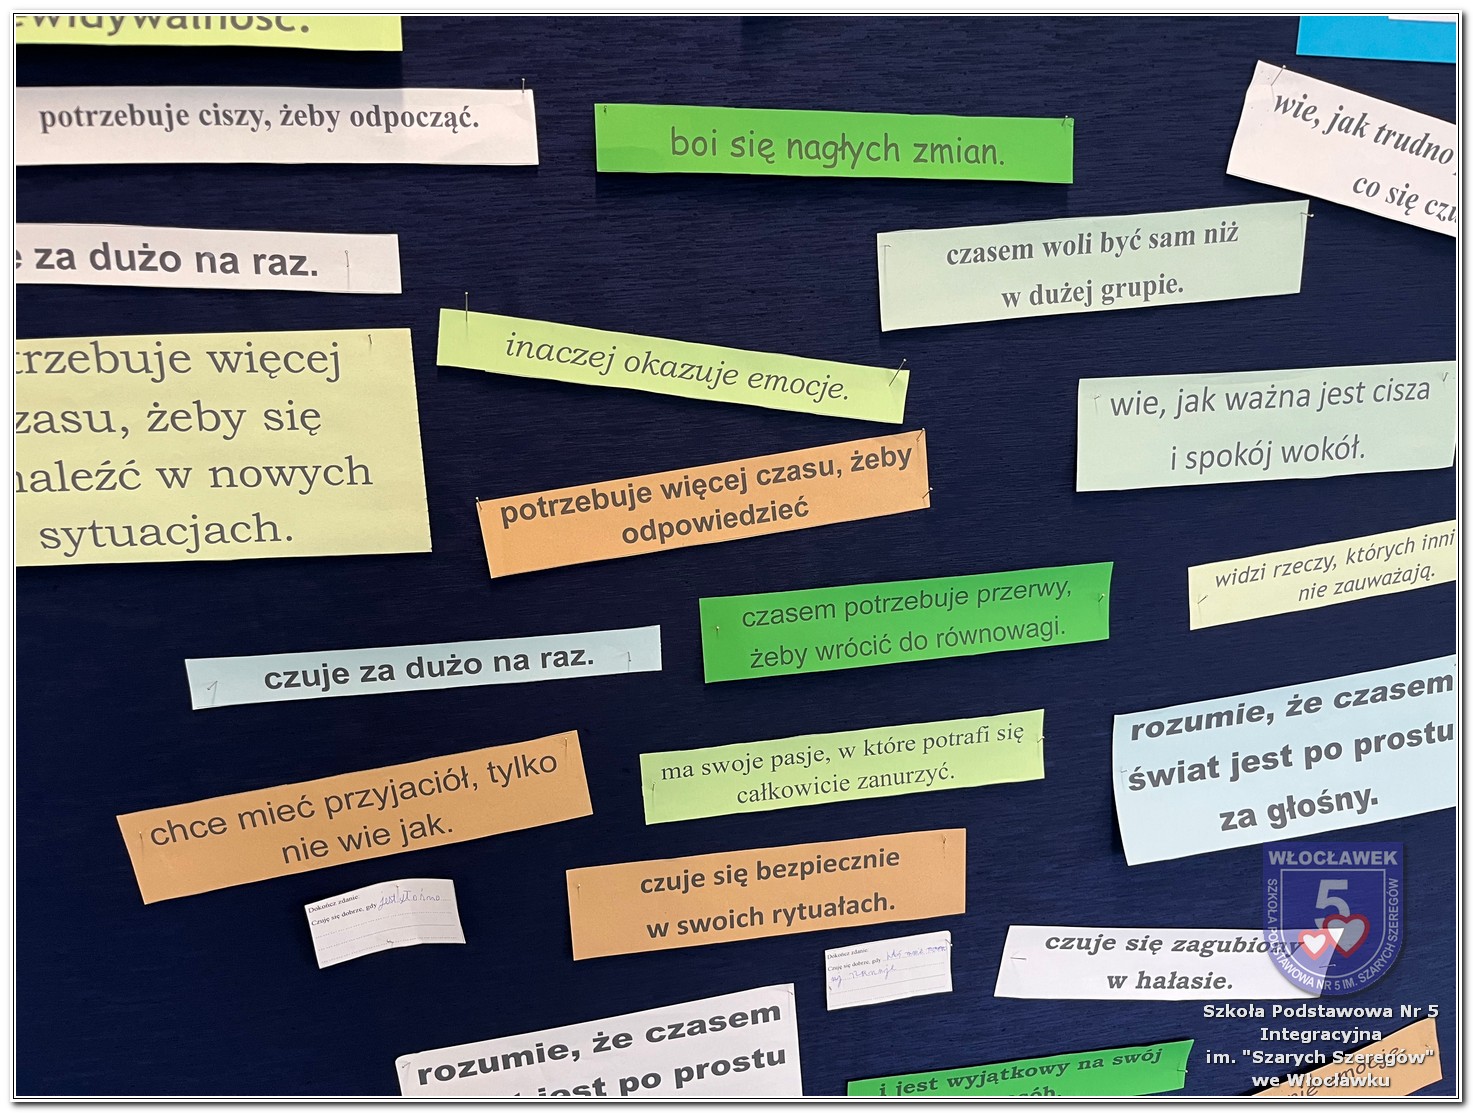 potrzebuje ciszy, żeby odpocząć.
boi się nagłych zmian.
wie, jak trudno
co się
za dużo na raz.
czasem woli być sam niż
w dużej grupie.
inaczej okazuje emocje.
więcej
żeby się
w nowych
sytuacjach.
wie, jak ważna jest cisza
i spokój wokół.
potrzebuje więcej czasu, żeby
odpowiedzieć
widzi rzeczy, których inni
nie zauważają.
czasem potrzebuje przerwy,
żeby wrócić do równowagi.
czuje za dużo na raz.
rozumie, że czasem
świat jest po prostu
za głośny.
ma swoje pasje, w które potrafi się
całkowicie zanurzyć.
chce mieć przyjaciół, tylko
nie wie jak.
czuje się bezpiecznie
w swoich rytuałach.
Dokończ zdanie:
Czuję się dobrze, gdy jest
Dokończ zdanie:
Czuję się dobrze, gdy
czuje się zagubiony
w hałasie.
rozumie, że czasem
jest po prostu
i jest wyjątkowy na swój
WŁOCŁAWEK
5
SZKOŁA PODSTAWOWA NR 5 IM. SZARYCH SZEREGÓW
Szkoła Podstawowa Nr 5
Integracyjna
im. "Szarych Szeregów"
we Włocławku